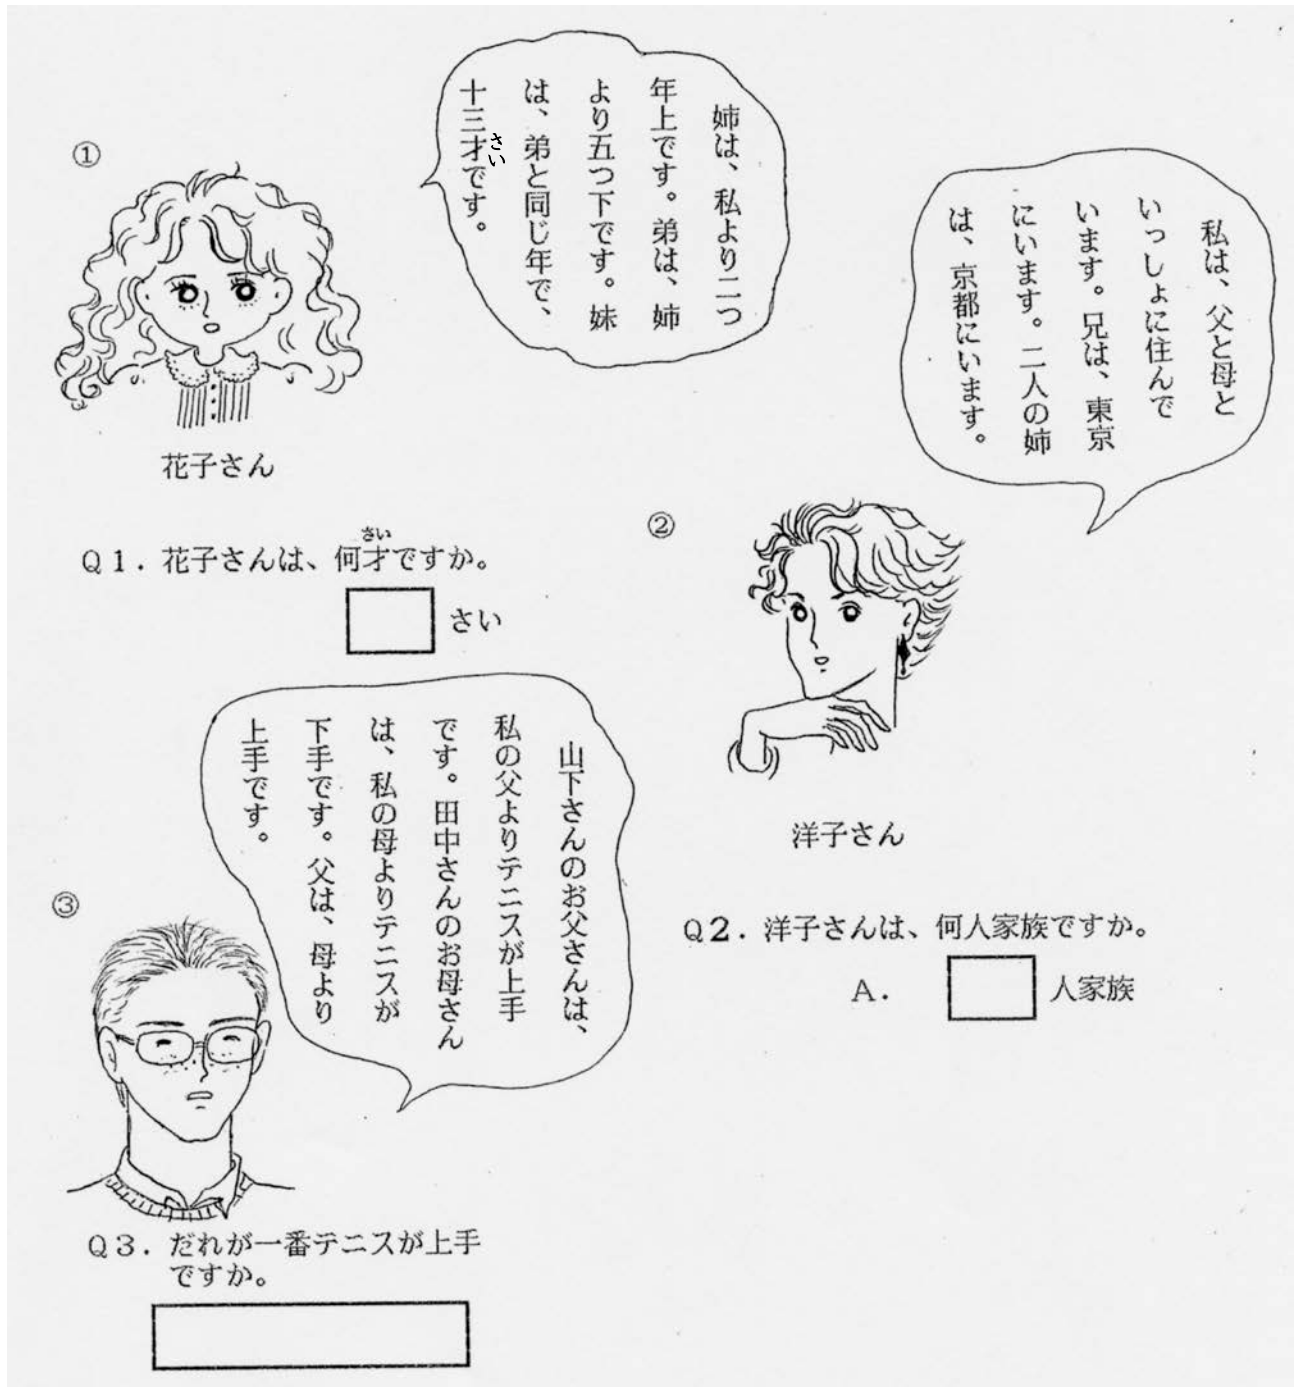 ①
姉は、私より二つ
年上です。弟は、姉
より五つ下です。妹
は、弟と同じ年で、
十三才です。
さい
花子さん
さい
Q1．花子さんは、何才ですか。
さい
私は、父と母と
いっしょに住んで
います。兄は、東京
にいます。二人の姉
は、京都にいます。
②
洋子さん
Q2．洋子さんは、何人家族ですか。
A． 人家族
山下さんのお父さんは、
私の父よりテニスが上手
です。田中さんのお母さん
は、私の母よりテニスが
下手です。父は、母より
上手です。
③
Q3．だれが一番テニスが上手
ですか。